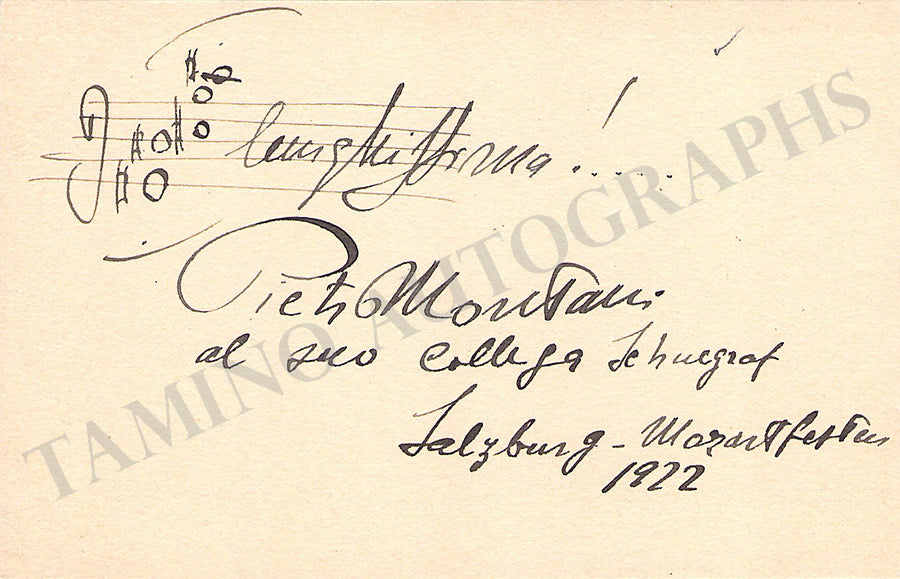 lunghissima!.....
Pietro Montani
al suo collega Schuegraf
Salzburg - Mozartfestein
1922
TAMINO AUTOGRAPHS